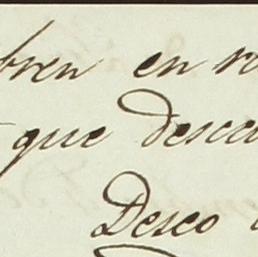 bren en re
que desea
Deseo